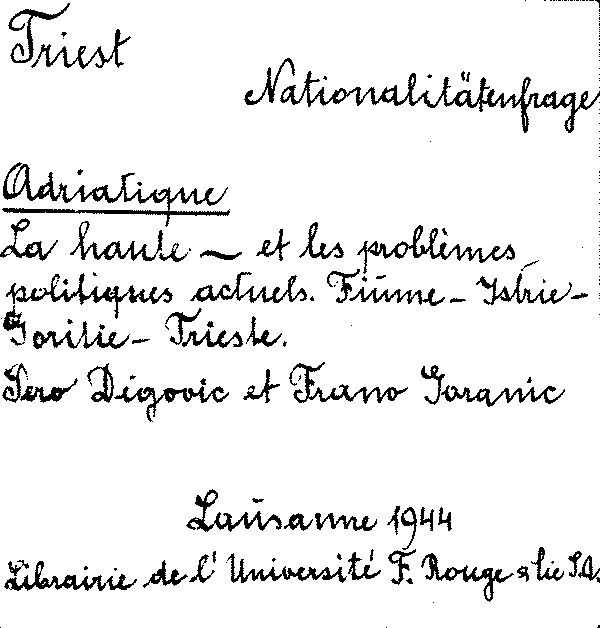 Triest
Nationalitätenfrage
Adriatique
La haute — et les problèmes
politiques actuels. Fiume - Istrie -
Goritie - Trieste.
Pero Digovic et Frano Goranic
Lausanne 1944
Librairie de l'Université F. Rouge & Cie S.A.